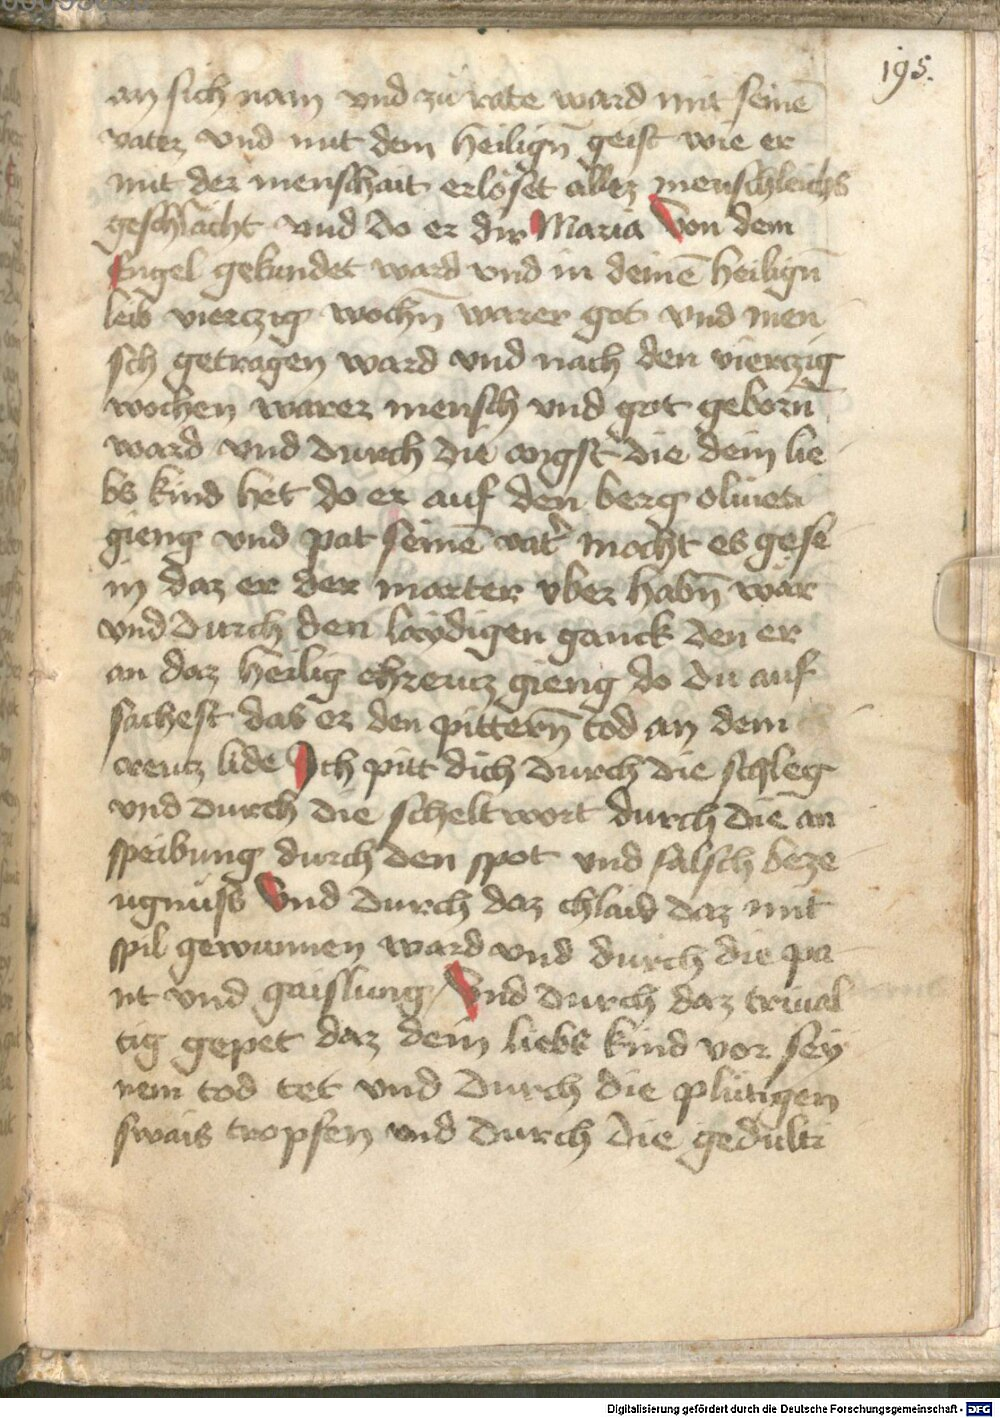 195.
an sich nam vnd zů rate ward mit seinē
vater vnd mit dem heiligñ geist wie er
mit der menschait erlöset allez menschleichs
geschlächt vnd do er dir Maria Von dem
Engel gekundet ward vnd in deinē heiligñ
leib vierczig wochñ warer got vnd men
sch getragen ward vnd nach den vierczig
wochen warer mensch vnd got geborñ
ward vnd durch die angst die dein lie
bs kind het do er auf den berg oliueti
gieng vnd pat seinē vatʼ mocht es gese
in daz er der marter vber habñ wär
vnd durch den laydigen ganck den er
an daz heilig chreucz gieng do du auf
sachest das er den pitterñ tod an dem
creucz lide Ich pitt dich durch die schleg
vnd durch die schelt wort durch die an
speibung durch den spot vnd falsch beze
ugnüss Vnd durch daz chlaid daz mit
spil gewunnen ward vnd durch die pa
nt vnd gaislung / Vnd durch daz triual
tig gepet daz dein liebs kind vor sey
nem tod tet vnd durch die plütigen
swais tropfen vnd durch die gedulti
Digitalisierung gefördert durch die Deutsche Forschungsgemeinschaft - DFG